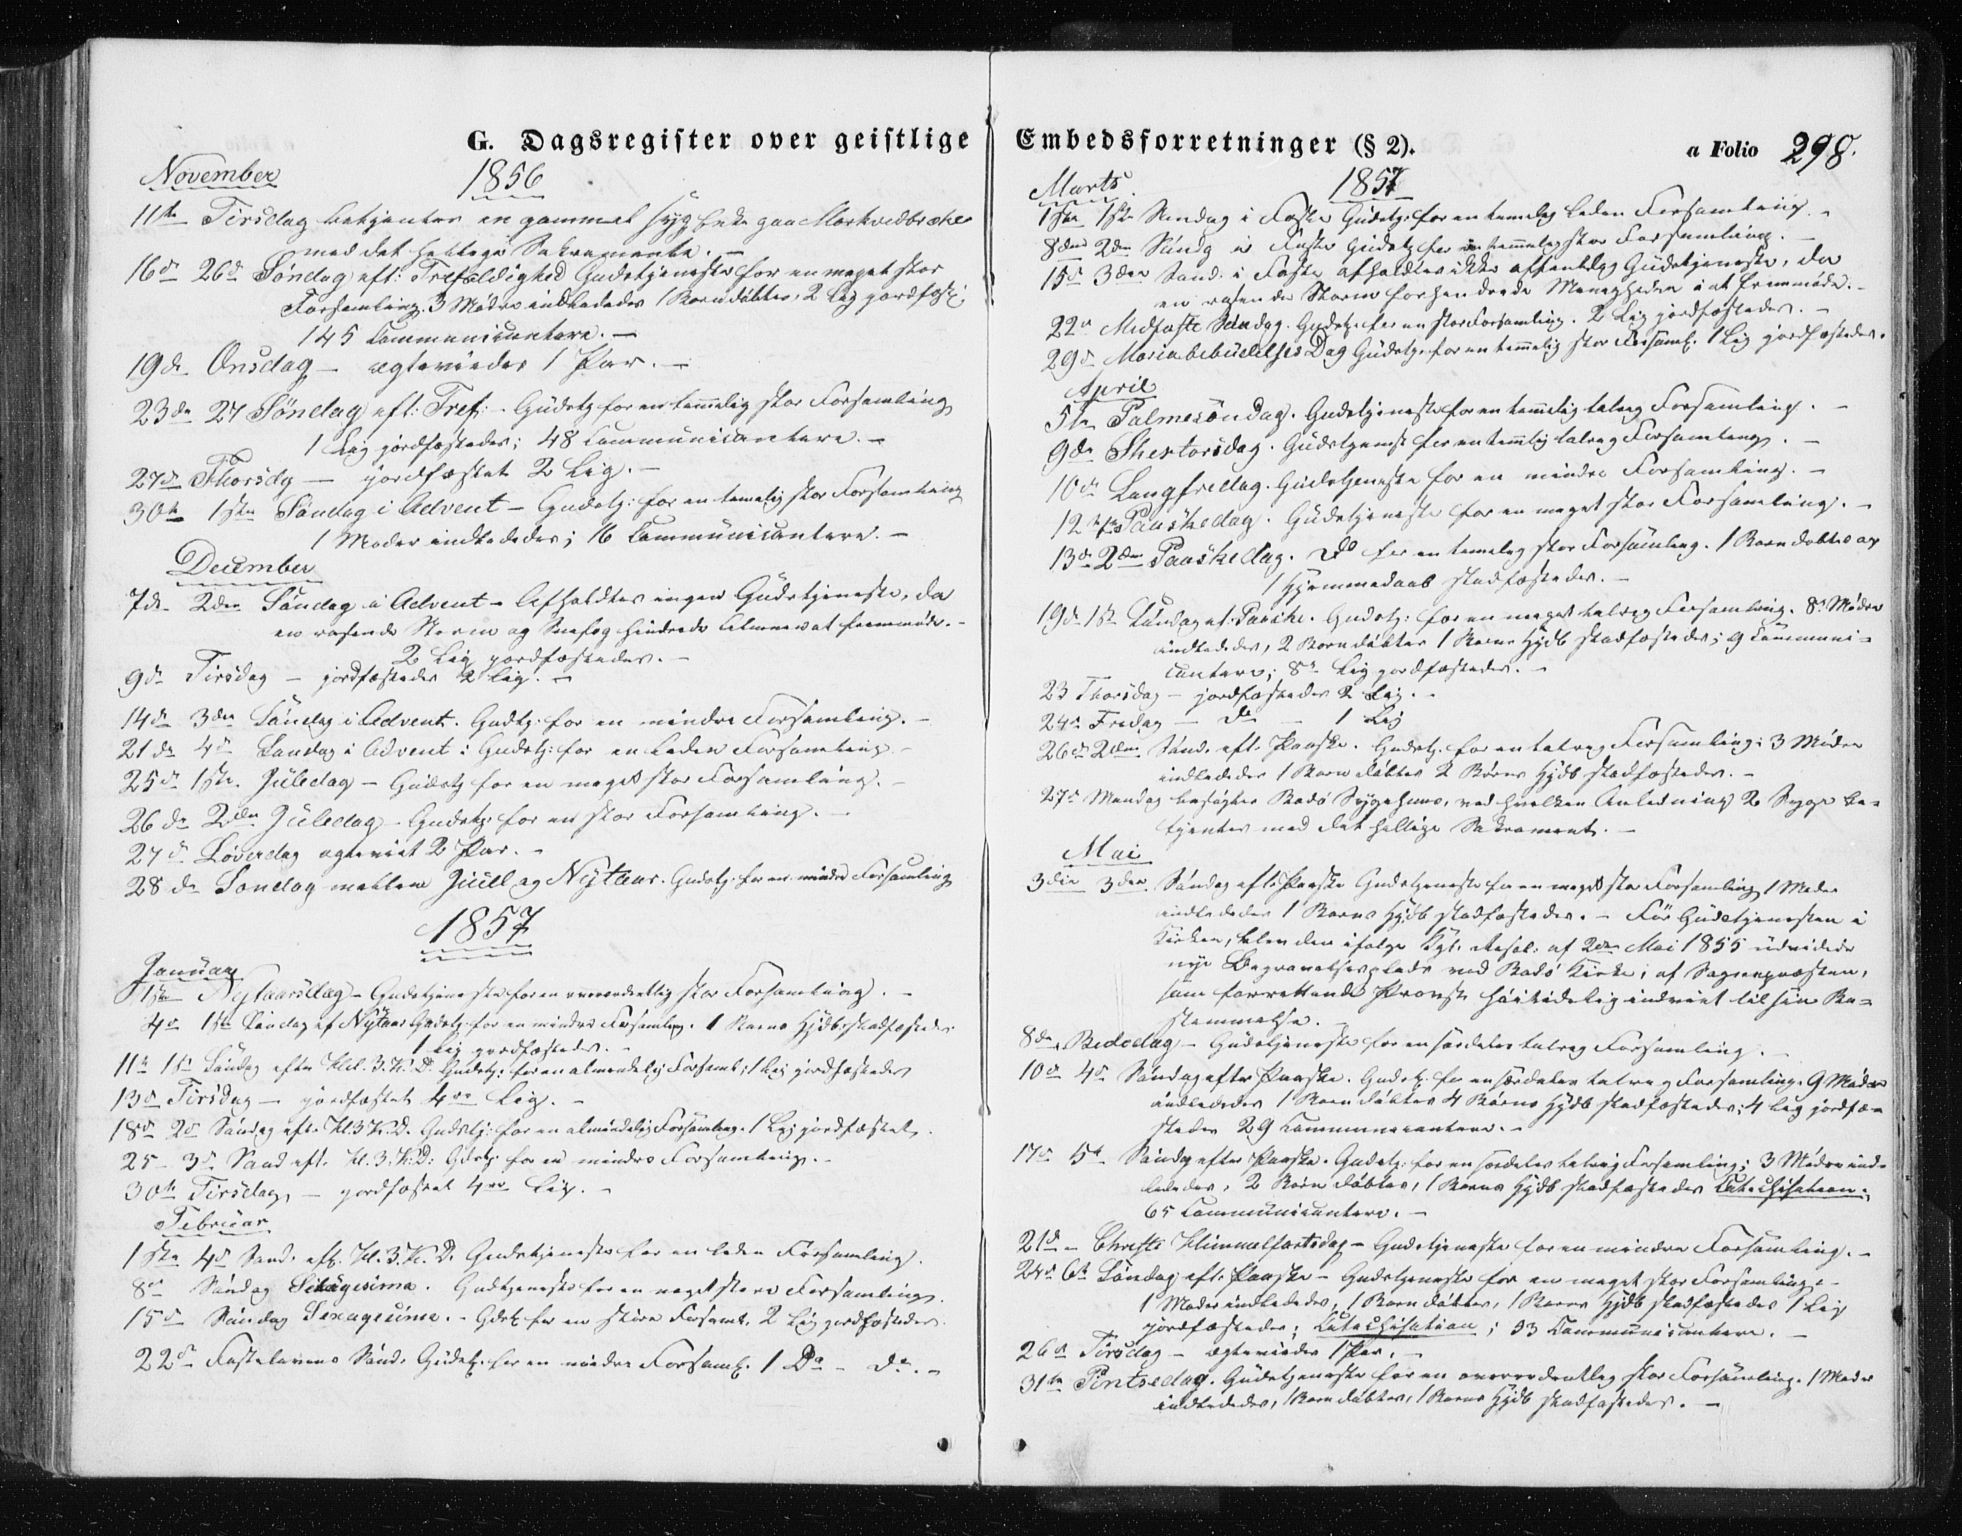 G. Dagsregister over geistlige
November
1856
11te Tirsdag betjentes en gammel syg paa Mørkvedbræke
med det hellige Sakramente. –
16de 26de Søndag eft: Trefoldighed Gudstjeneste for en meget stor
Forsamling. 3 Mødre indlededes 1 Barn døbtes, 2 Lig jordfæst;
145 Communicantere. –
19de Onsdag – ægteviedes 1 Par. –
23de 27 Søndag eft: Tref: – Gudstj for en temmelig stor Forsamling
1 Lig jordfæstedes; 48 Communicantere. –
27de Thorsdg – jordfæstet 2 Lig. –
30te 1ste Søndag i Advent – Gudstj: for en temelig stor Forsamling
1 Moder indlededes; 16 Communicantere. –
December
7de 2den Søndag i Advent – Afholdtes ingen Gudstjeneste, da
en rasende Storm og Snefog hindrede Almuen at fremmøde. –
2 Lig jordfæstedes. –
9de Tirsdag – jordfæstedes 2 Lig. –
14de 3die Søndag i Advent. Gudtj: for en mindre Forsamling. –
21de 4de Søndag i Advent: Gudstj: for en liden Forsamling –
25de 1ste Juledag – Gudstj for en meget stor Forsamling. –
26de 2den Juledag – Gudstj: for en stor Forsamling. –
27de Løverdag egteviet 2 Par. –
28de Søndag mellem Juul og Nytaar. Gudstj. for en mindre Forsamling
1857
Januar
1ste Nytaarsdag – Gudstjeneste for en overordentlig stor Forsamling. –
4de 1ste Søndag ef Nytaar Gudstj: for en mindre Forsamlg. 1 Barns Hjdb: stadfæstedes
1 Lig jordfæstedes. –
11te 1ste Søndag efter Hel. 3. K. D. Gudstj: for en almindelig Forsaml; 1 Lig jordfæstedes
13de Tirsdag – jordfæstet 4re Lig. –
18de 2de Søndag eft. Hl. 3 K. D. Gudstj: for en almindelig Forsamling. 1 Lig jordfæstet.
25 – 3de Sønd eft. Hl. 3. K: D: Gdstj: for en mindre Forsamling. –
30te Tirsdag, – jordfæstet 4re Lig. –
Februar
1ste 4de Sønd. eft. Hl. 3. K. D. Gudstjeneste for en liden Forsamling.
8de Søndag . Gudtjeneste for en meget stor Forsamling.
15de Søndag Sexagesima. – Gdstj for en større Forsaml. 2 Lig jordfæstedes.
22de Fastelavens Sønd. Gudstj. for en mindre Forsaml. 1 Do – do. –
Embedsforretninger (§ 2).
a Folio 298.
Marts
1857
1ste 1ste Søndag i Faste Gudstj: for en temelig liden Forsamling. –
8de 2den Søndg i Faste Gudstj for en temmelig stor Forsamling. –
15de 3die Sønd. i Faste afholdtes ikke offentlig Gudstjeneste, da
en rasende Storm forhendrede Menigheden i at fremmøde. –
22de Midfaste Søndag. Gudstj: for en stor Forsamling. 2 Lig jordfæstedes. –
29de Mariæbebudelses Dag Gudstj: for en temelig stor Forsaml. 1 Lig jordfæstedes.
April
5te Palmesøndag. Gudstjeneste for en temmelig talrig Forsamling. –
9de Skertorsdag. Gudstjenest for en temmelig talrig Forsamling. –
10de Langfredag. Gudstjeneste for en mindre Forsamling. –
12te 1ste Paaskedag. Gudstjeneste for en meget stor Forsamling. –
13de 2den Paaskedag. Do for en temelig stor Forsamling. 1 Barn døbtes og
1 Hjemmedaab stadfæstedes. –
19de 1ste Søndag ef. Paaske. Gudstj: for en meget talrig Forsamling. 8te Mødre
indlededes, 2 Børn døbtes 1 Barns Hjdb stadfæstedes; 9 Communi-
cantere; 8te Lig jordfæstedes. –
23 Thorsdag – jordfæstedes 2 Lig. –
24de Fredag – do – 1 Lig
26de 2den Sønd. eft. Paaske. Gudstj. for en talrig Forsamling: 3 Mødre
indlededes 1 Barn døbtes 2 Børns Hjdb stadfæstedes. –
27de Mandag besøgtes Bodø Sygehuus, ved hvilken Anledning 2 Syge be-
tjentes med det hellige Sakrament. –
Mai
3die 3die Søndag eft. Paaske Gudstjeneste for en meget stor Forsamling 1 Moder
indlededes 1 Barns Hjdb stadfæstedes. – Før Gudstjenesten i
Kirken, blev den ifølge Kgl. Resol: af 2den Mai 1855 udvidede
nye Begravelsesplads ved Bodø Kirke, af Sognepræsten,
som forrettende Provst høitidelig indviet til sin Be-
stemmelse. –
8de Bededag – Gudstjeneste for en særdeles talrig Forsamling. –
10de 4de Søndag efter Paaske. Gudstj. for en særdeles talrig Forsamling. 9 Mødre
indlededes 1 Barn døbtes 4 Børns Hjdb stadfæstedes; 4 Lig jordfæ-
stedes 29 Communicantere. –
17de 5te Søndag efter Paaske. Gudstj: for en særdeles talrig Forsamling; 3 Mødre ind-
lededes, 2 Børn døbtes, 1 Barns Hjdb stadfæstedes Catechisation;
65 Communicantere. –
21de – Christi Himmelfartsdag – Gudstjeneste for en mindre Forsamling. –
24de 6te Søndag eft. Paaske – Gudstjeneste for en meget stor Forsamling. –
1 Moder indlededes, 1 Barn døbtes, 1 Barns Hjdb stadfæstedes 1 Lig
jordfæstedes; Catechisation; 93 Communicantere. –
26de Tirsdag – egteviedes 1 Par. –
31te Pintsedag. Gudstjeneste for en overordentlig stor Forsamling. 1 Moder
indlededes, 1 Barn døbtes, 1 Barns Hjdb stadfæstedes. –